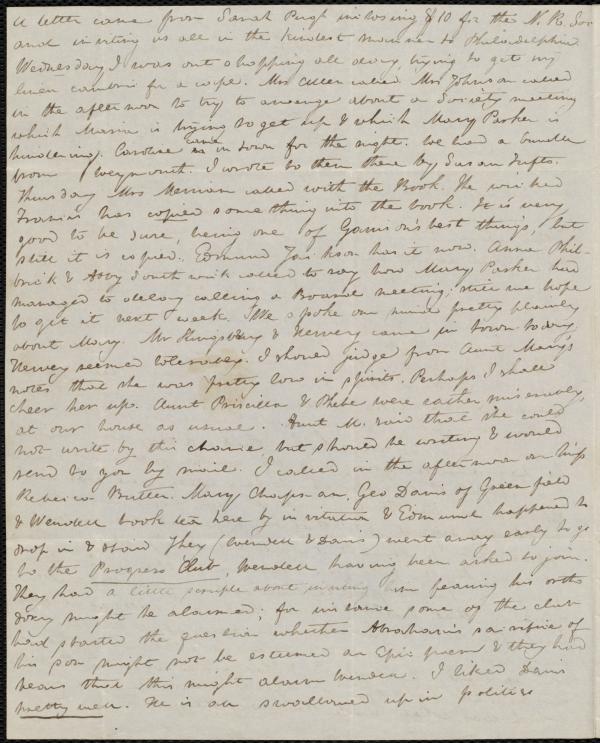 A letter came from Sarah Pugh inclosing $10 for the N. R. Soc
and inviting us all in the kindest manner to Philadelphia
Wednesday I was out shopping all day, trying to get my
linen cambric for a cape. Mrs called Mrs Johnson called
in the afternoon to try to arrange about a Society meeting
which Maria is trying to get up & which Mary Parker is
hindering. Caroline came in town for the night. We had a bundle
from Weymouth. I wrote to them there by Susan Tufts.
Thursday Mrs Merriam called with the Book. The wicked
Francis has copied something into the book. It is very
good to be sure, being one of Garrison's best things, but
still it is copied. Edmund Jackson has it now. Anna Phil-
brick & Abby Southwick called to say how Mary Parker had
managed to delay calling a Board meeting. Still we hope
to get it next week. We spoke our mind pretty plainly
about Mary. Mr Kingsbury & Hervey came in town today
Hervey seemed tolerably. I should judge from Aunt Mary's
notes that she was pretty low in spirits. Perhaps I shall
cheer her up. Aunt Priscilla & Phebe were rather miserably
at our house as usual. Aunt M. said that she could
not write by this chance, but should be writing & would
send to you by mail. I called in the afternoon on Miss
Rebecca Butler. Mary Chapman, Geo Davis of Greenfield
& Wendell took tea here by invitation & Edmund happened to
drop in & staid They (Wendell & Davis) went away early to go
to the Progress Club, Wendell having been asked to join.
They had a little scruple about inviting him fearing his ortho
doxy might be alarmed; for instance some of the club
had started the question whether Abraham's sacrifice of
his son might not be esteemed an Epic poem & they had
fears that this might alarm Wendell. I liked Davis
pretty well. He is all swallowed up in politics